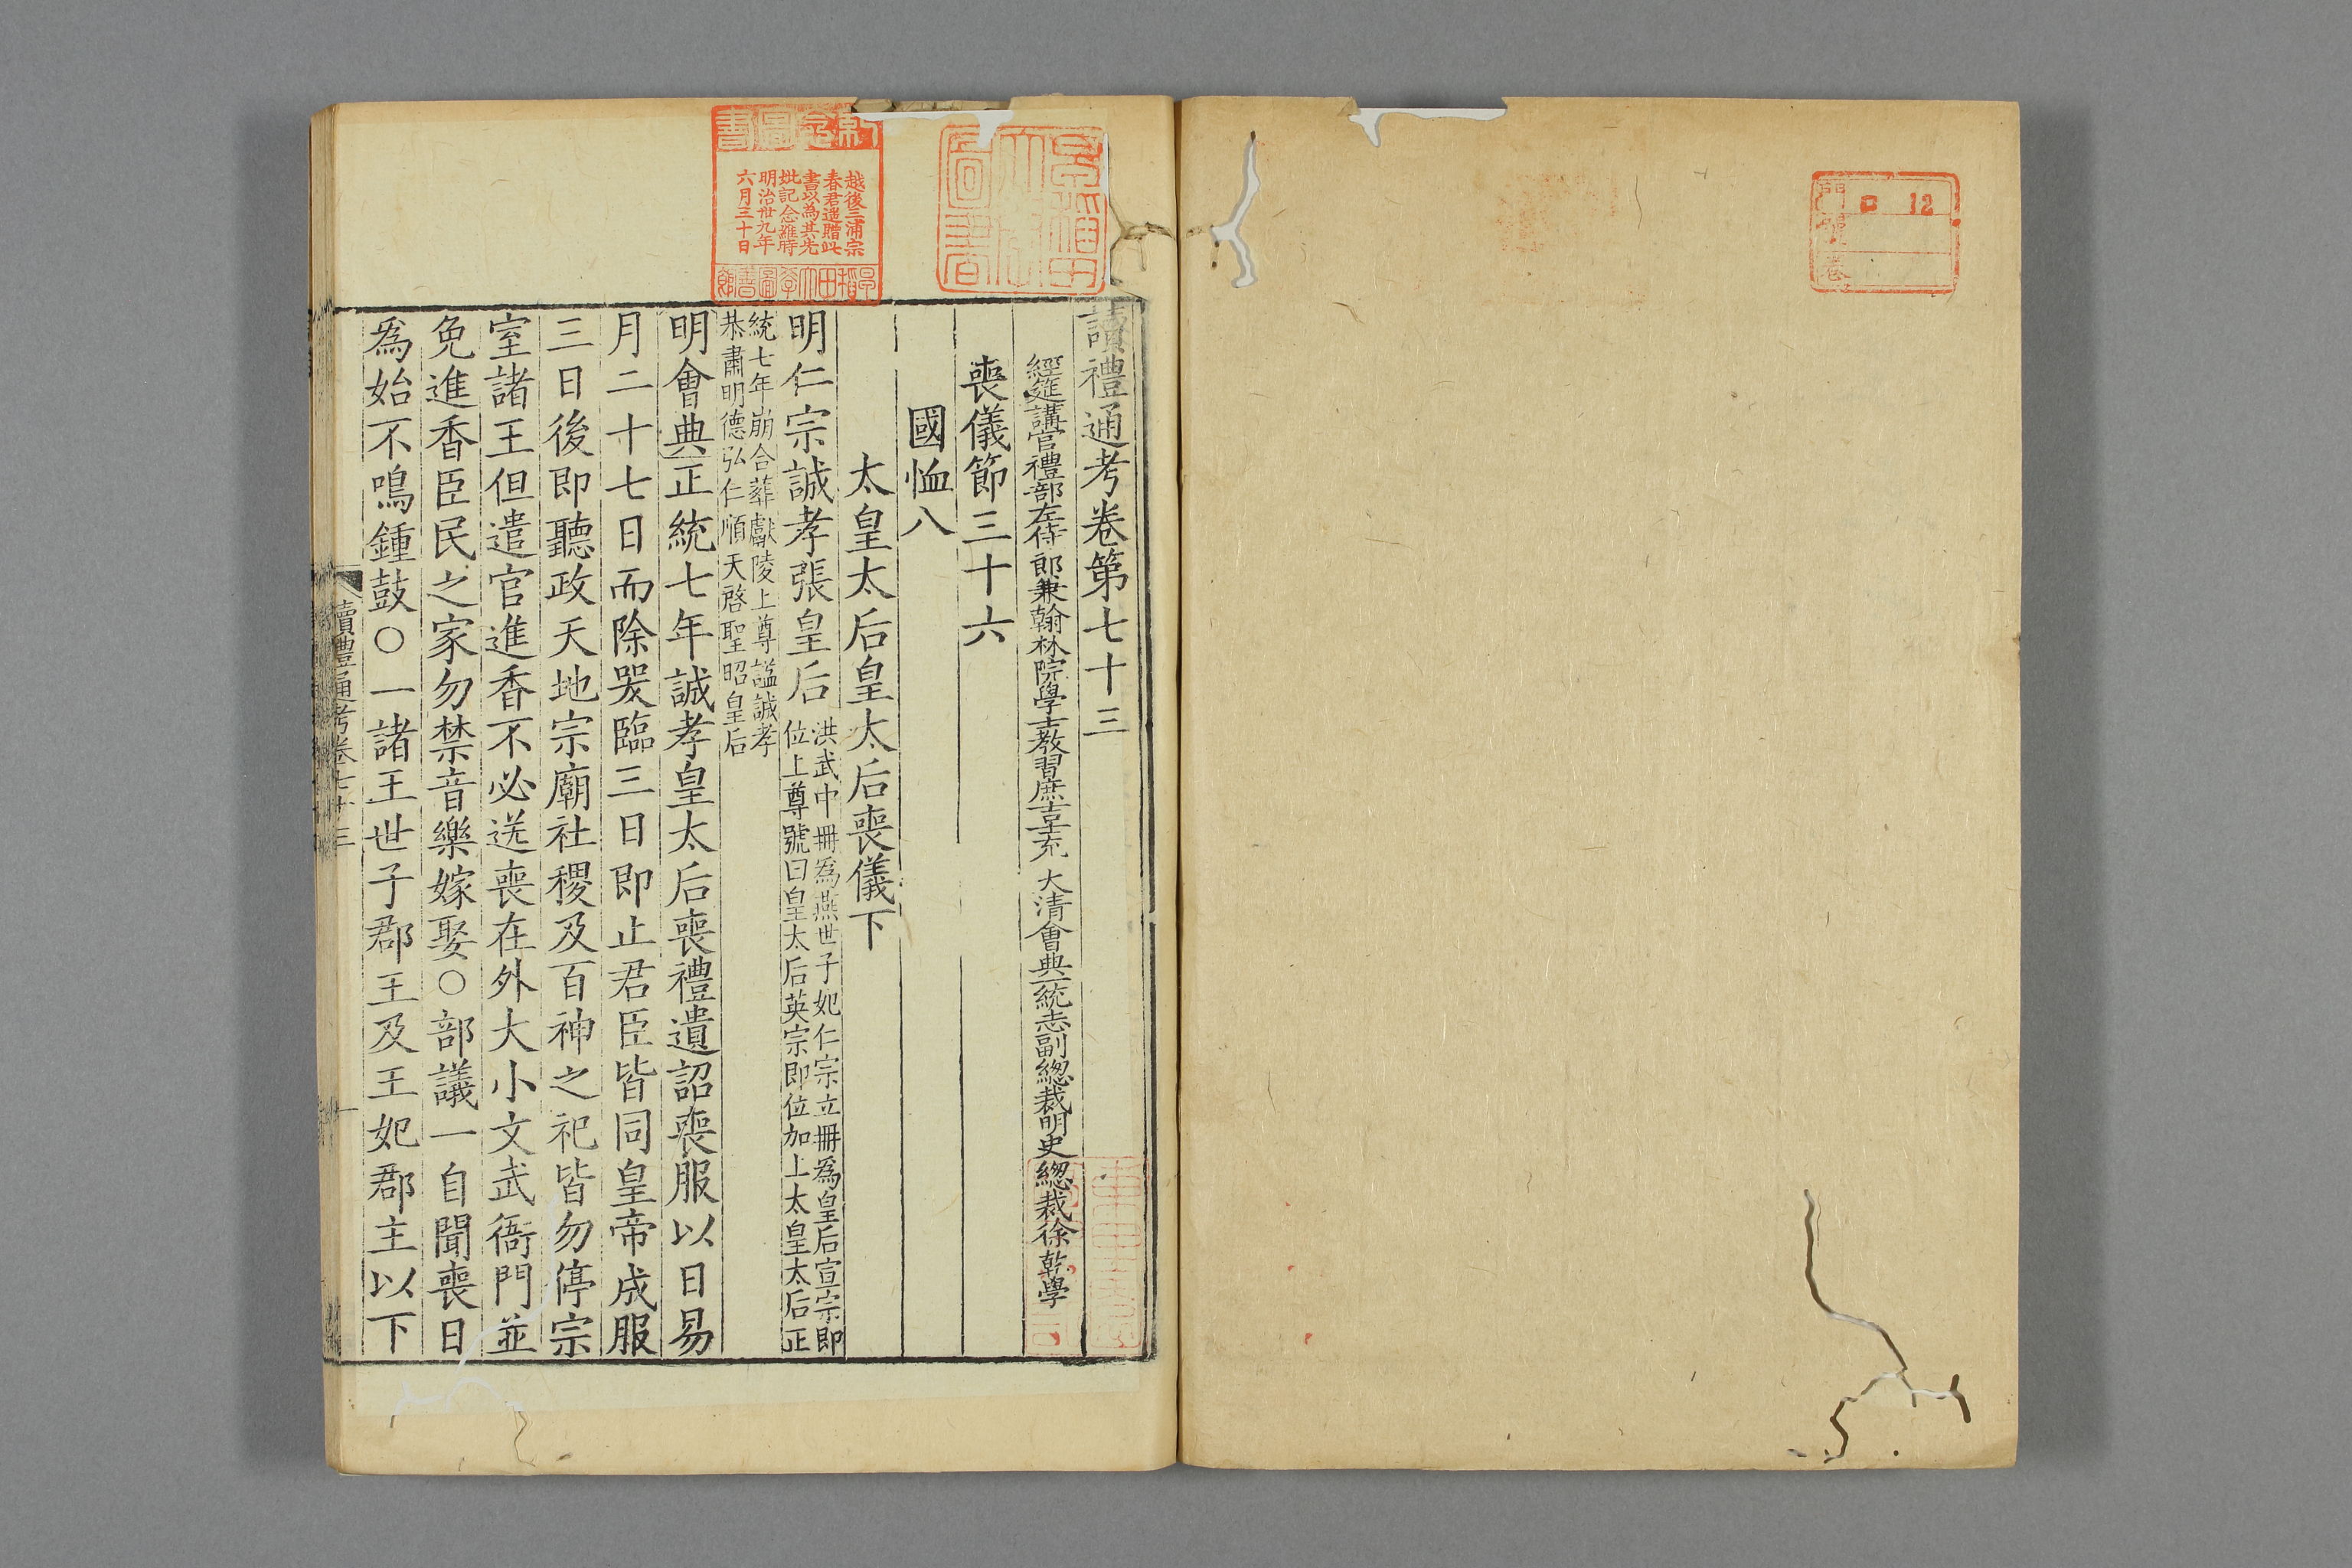 門 ロ 12
號
卷
早稲田大學圖書
紀念圖書
越後三浦宗
春君遺贈此
書以為其先
妣記念維時
明治卅九年
六月三十日
早稲田大學圖書館
讀禮通考卷第七十三
經筵講官禮部左侍郎兼翰林院學士教習庶吉士充 大清會典一統志副總裁明史總裁徐乾學
喪儀節三十六
國恤八
太皇太后皇太后喪儀下
明仁宗誠孝張皇后 洪武中冊為燕世子妃仁宗立冊為皇后宣宗即
位上尊號曰皇太后英宗即位加上太皇太后正
統七年崩合葬獻陵上尊謚誠孝
恭肅明德弘仁順天啓聖昭皇后
明會典正統七年誠孝皇太后喪禮遺詔喪服以日易
月二十七日而除哭臨三日即止君臣皆同皇帝成服
三日後即聽政天地宗廟社稷及百神之祀皆勿停宗
室諸王但遣官進香不必送喪在外大小文武衙門並
免進香臣民之家勿禁音樂嫁娶○部議一自聞喪日
為始不鳴鍾鼓○一諸王世子郡王及王妃郡主以下
讀禮通考卷七十三
一